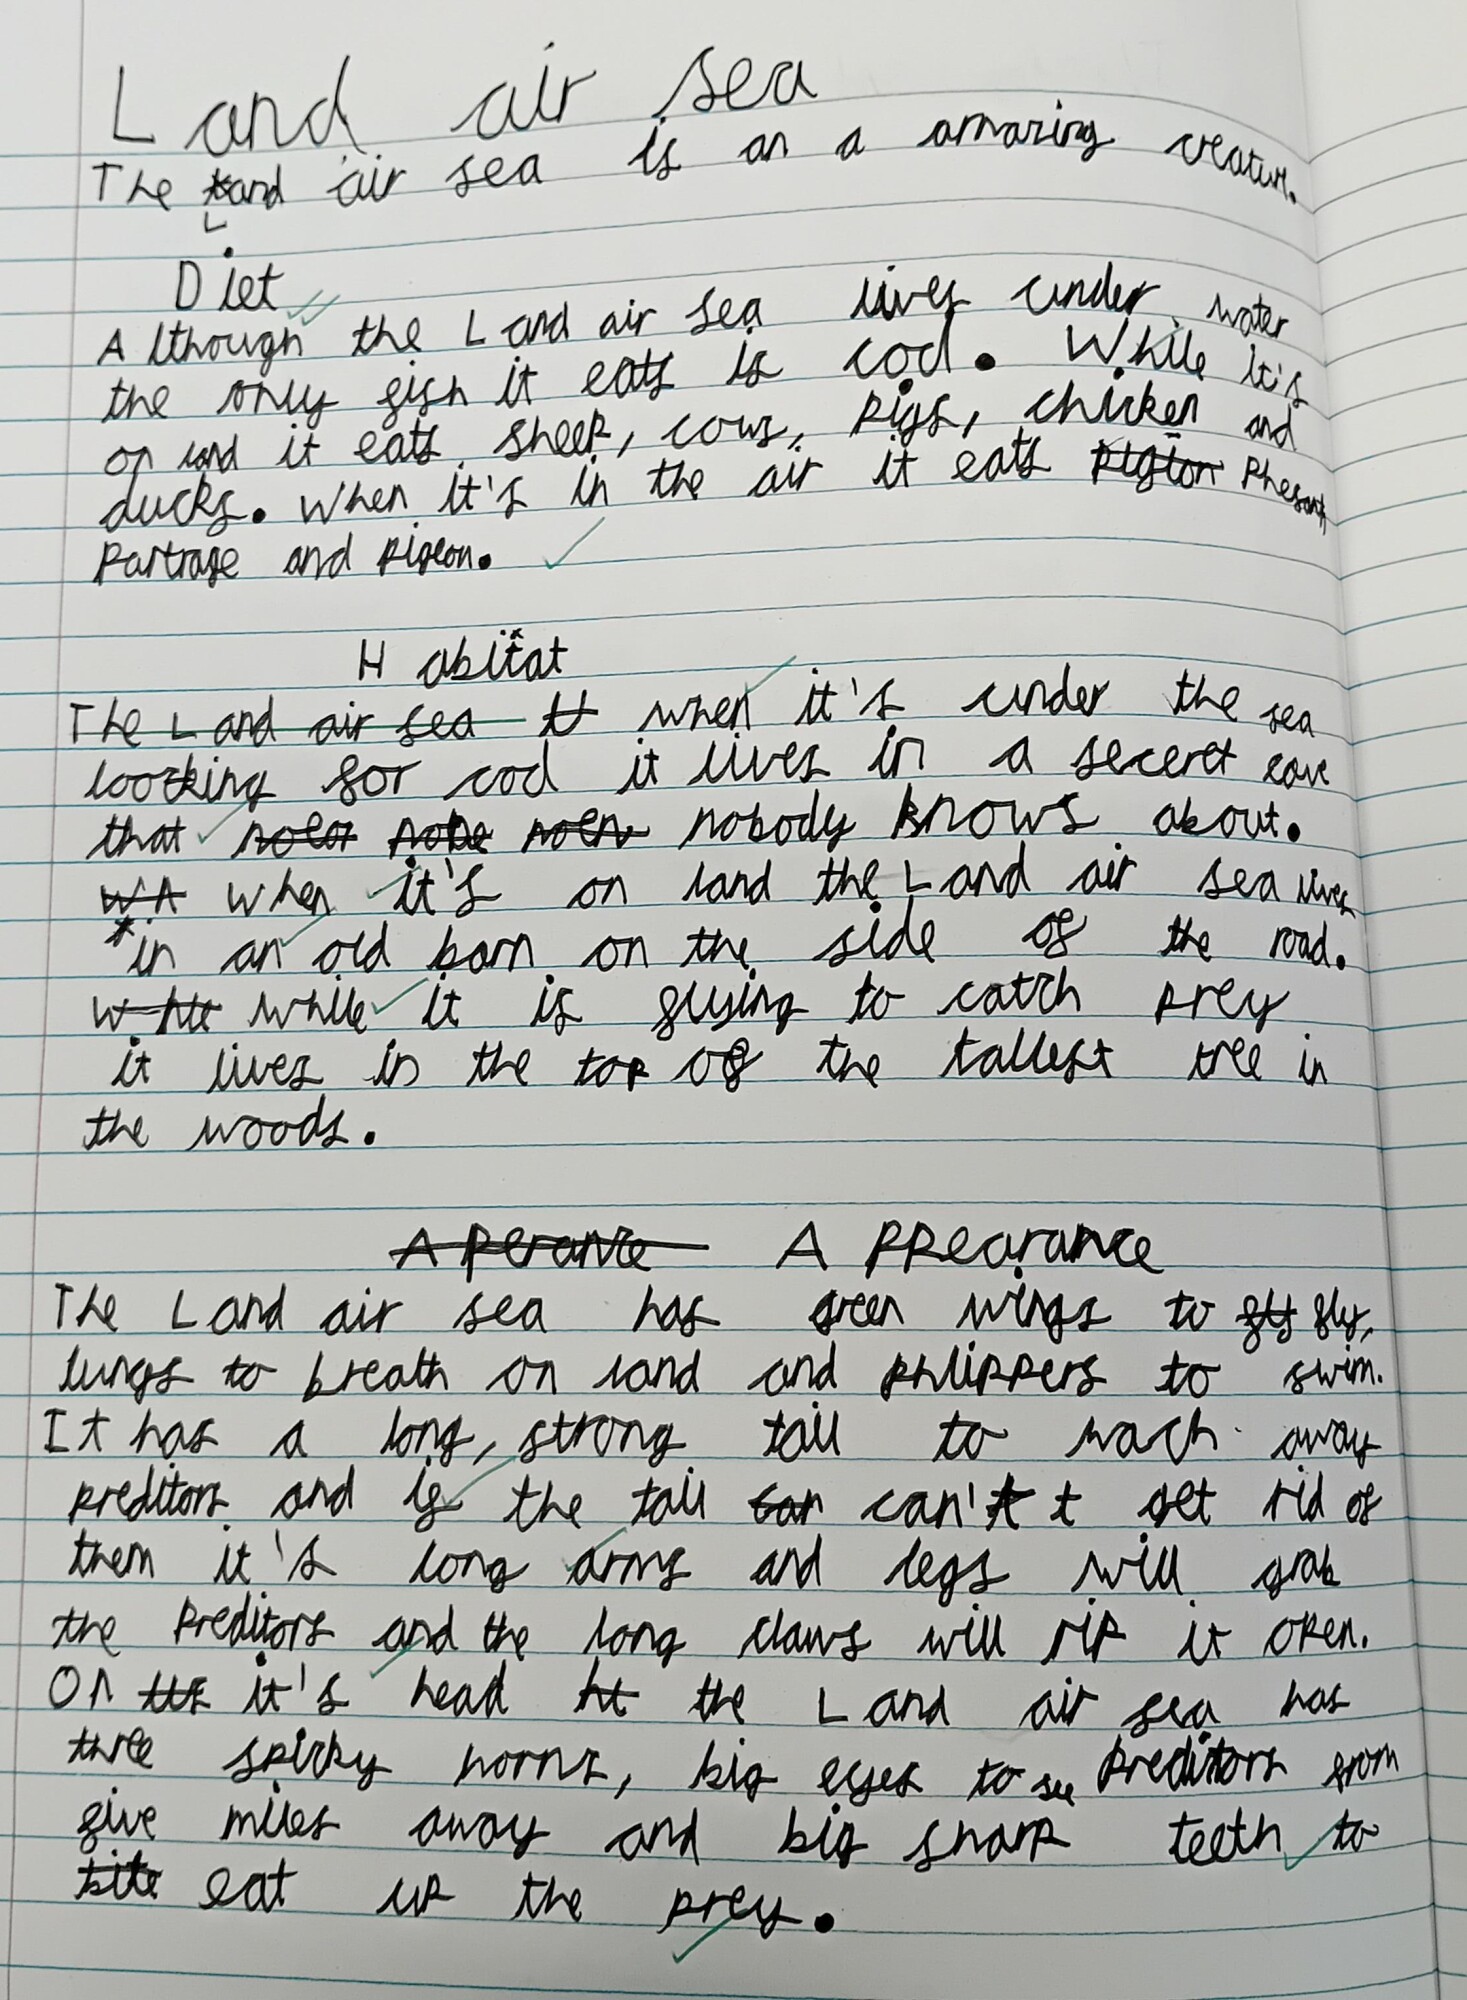 Land air sea
The Land air sea is an a amazing creature.
Diet
Although the Land air sea lives under water
the only fish it eats is cod. While it's
on land it eats sheep, cows, pigs, chicken and
ducks. When it's in the air it eats pigion Phesant
Partrage and pigeon.
Habitat
The Land air sea It when it's under the sea
loocking for cod it lives in a seceret cave
that nobody knows about.
WA when it's on land the Land air sea lives
in an old barn on the side of the road.
while it is flying to catch prey
it lives in the top of the tallest tree in
the woods.
Aperance Appearance
The Land air sea has green wings to fly fly,
lungs to breath on land and phlippers to swim.
It has a long, strong tail to wach away
preditors and if the tail can can't get rid of
them it's long arms and legs will grab
the preditors and the long claws will rip it open.
On its it's head ht the Land air sea has
three spicky horns, big eyes to see preditors from
five miles away and big sharp teeth to
bite eat up the prey.